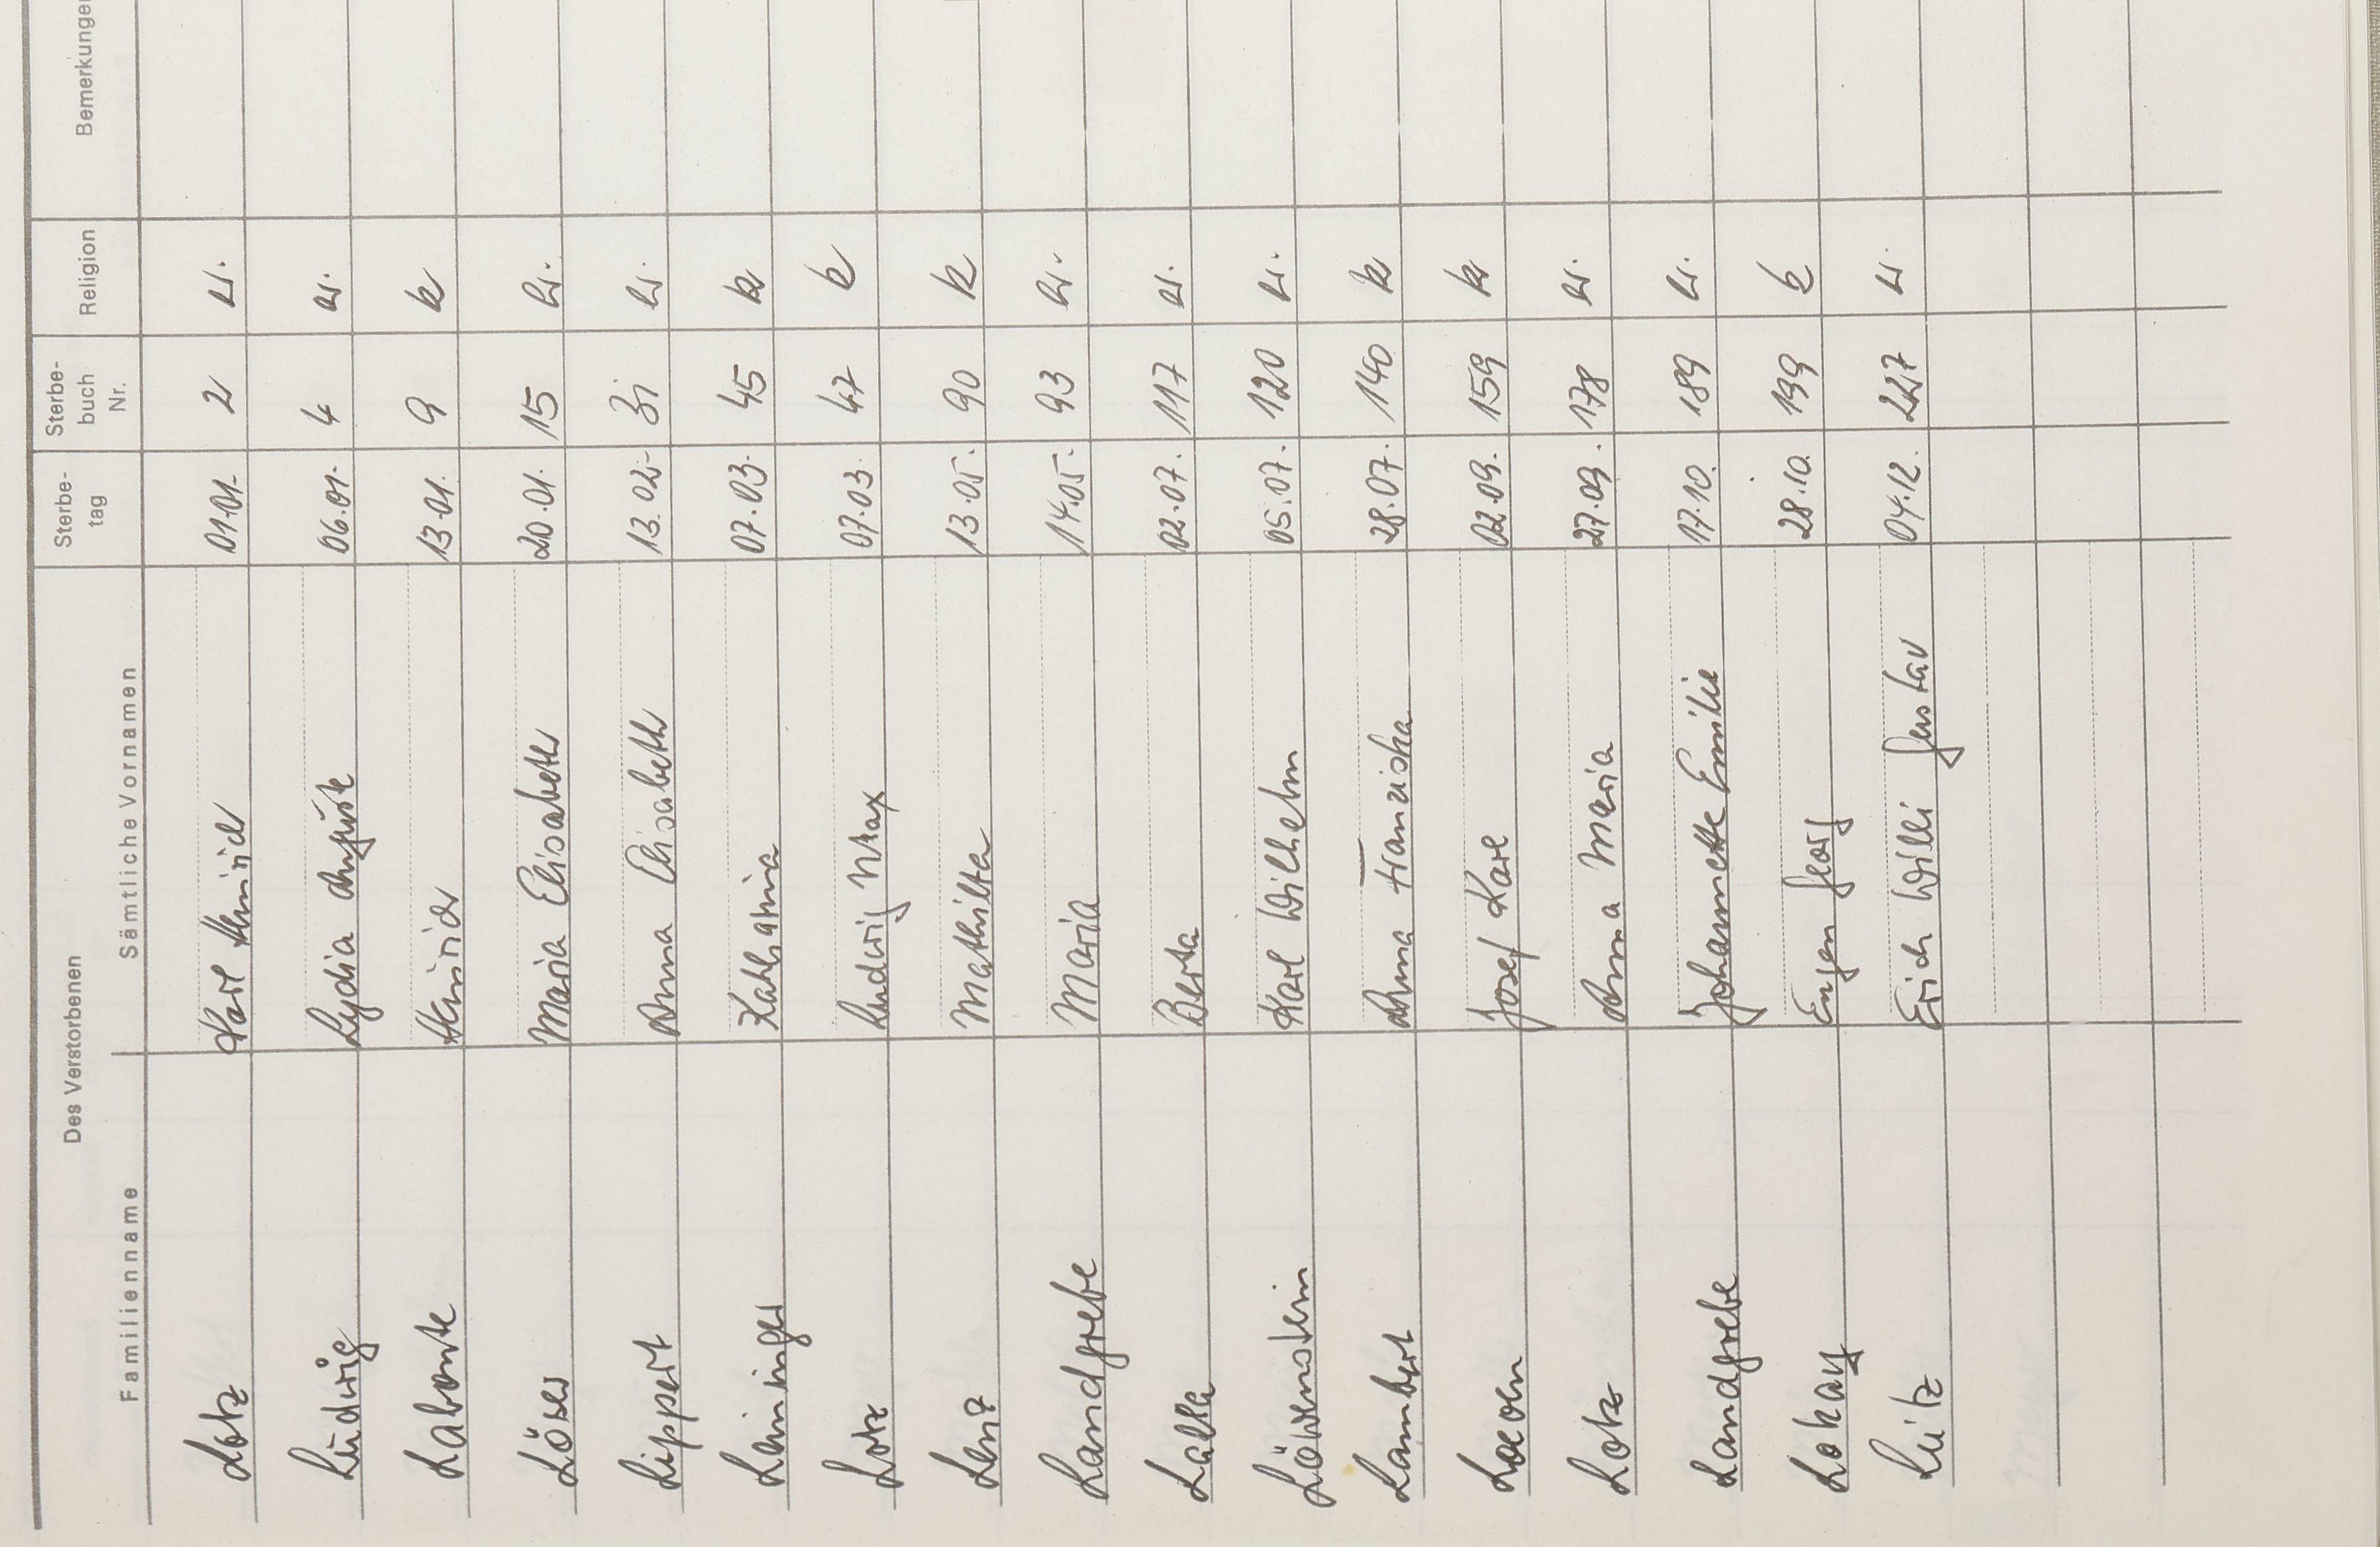 Des Verstorbenen
Familienname Sämtliche Vornamen Sterbe- tag Sterbe- buch Nr. Religion Bemerkungen
Lotz Karl Heinrich 01.01. 2 ev.
Ludwig Lydia Auguste 06.01. 4 ev.
Labonte Heinrich 13.01. 9 k
Löser Maria Elisabeth 20.01. 15 ev.
Lippert Anna Elisabeth 13.02. 31 ev.
Leininger Katharina 07.03. 45 k
Lotz Ludwig Max 07.03. 47 k
Lenz Mathilta 13.05. 90 k
Landgrebe Maria 14.05. 93 ev.
Berta 02.07. 117 ev.
Löwenstein Karl Wilhelm 05.07. 120 ev.
Lambert Anna Franziska 28.07. 140 k
Josef Karl 02.09. 159 k
Lotz Anna Maria 27.09. 178 ev.
Landgrebe Johannette Emilie 17.10. 189 ev.
Lokay Eugen Georg 28.10. 199 k
Leitz Erich Willi Gustav 04.12. 227 ev.